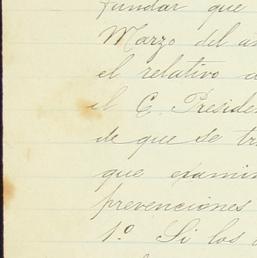 fundar que
Marzo del a
el relativo a
el C. Preside
de que se tr
que exami
prevenciones
1º Si los